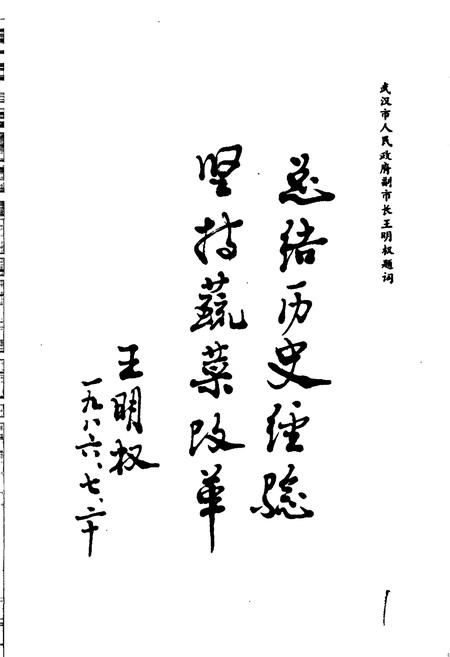 武汉市人民政府副市长王明权题词
总结历史经验
坚持蔬菜改革
王明权
一九八六、七、二十